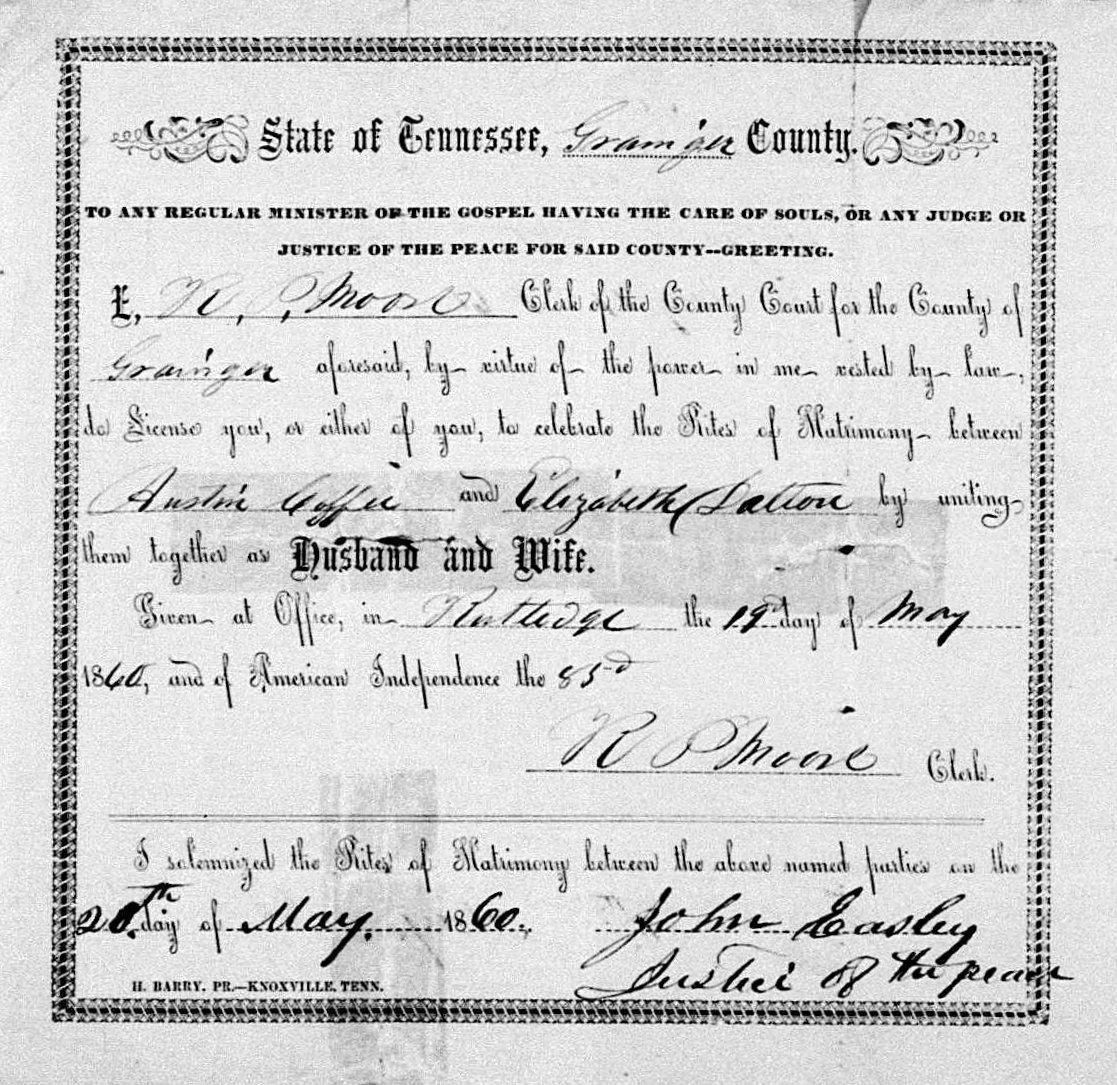 State of Tennessee, Grainger County.
TO ANY REGULAR MINISTER OF THE GOSPEL HAVING THE CARE OF SOULS, OR ANY JUDGE OR
JUSTICE OF THE PEACE FOR SAID COUNTY--GREETING.
I, R. P. Moore Clerk of the County Court for the County of
Grainger aforesaid, by virtue of the power in me vested by law,
do License you, or either of you, to celebrate the Rites of Matrimony between
Austin Coffie and Elizabeth Dalton by uniting
them together as Husband and Wife.
Given at Office, in Rutledge the 19th day of May
1860, and of American Independence the 83rd
R P Moore Clerk.
I solemnized the Rites of Matrimony between the above named parties on the
20th day of May. 1860. John Easley
Justice of the peace
H. BARRY, PR.—KNOXVILLE, TENN.